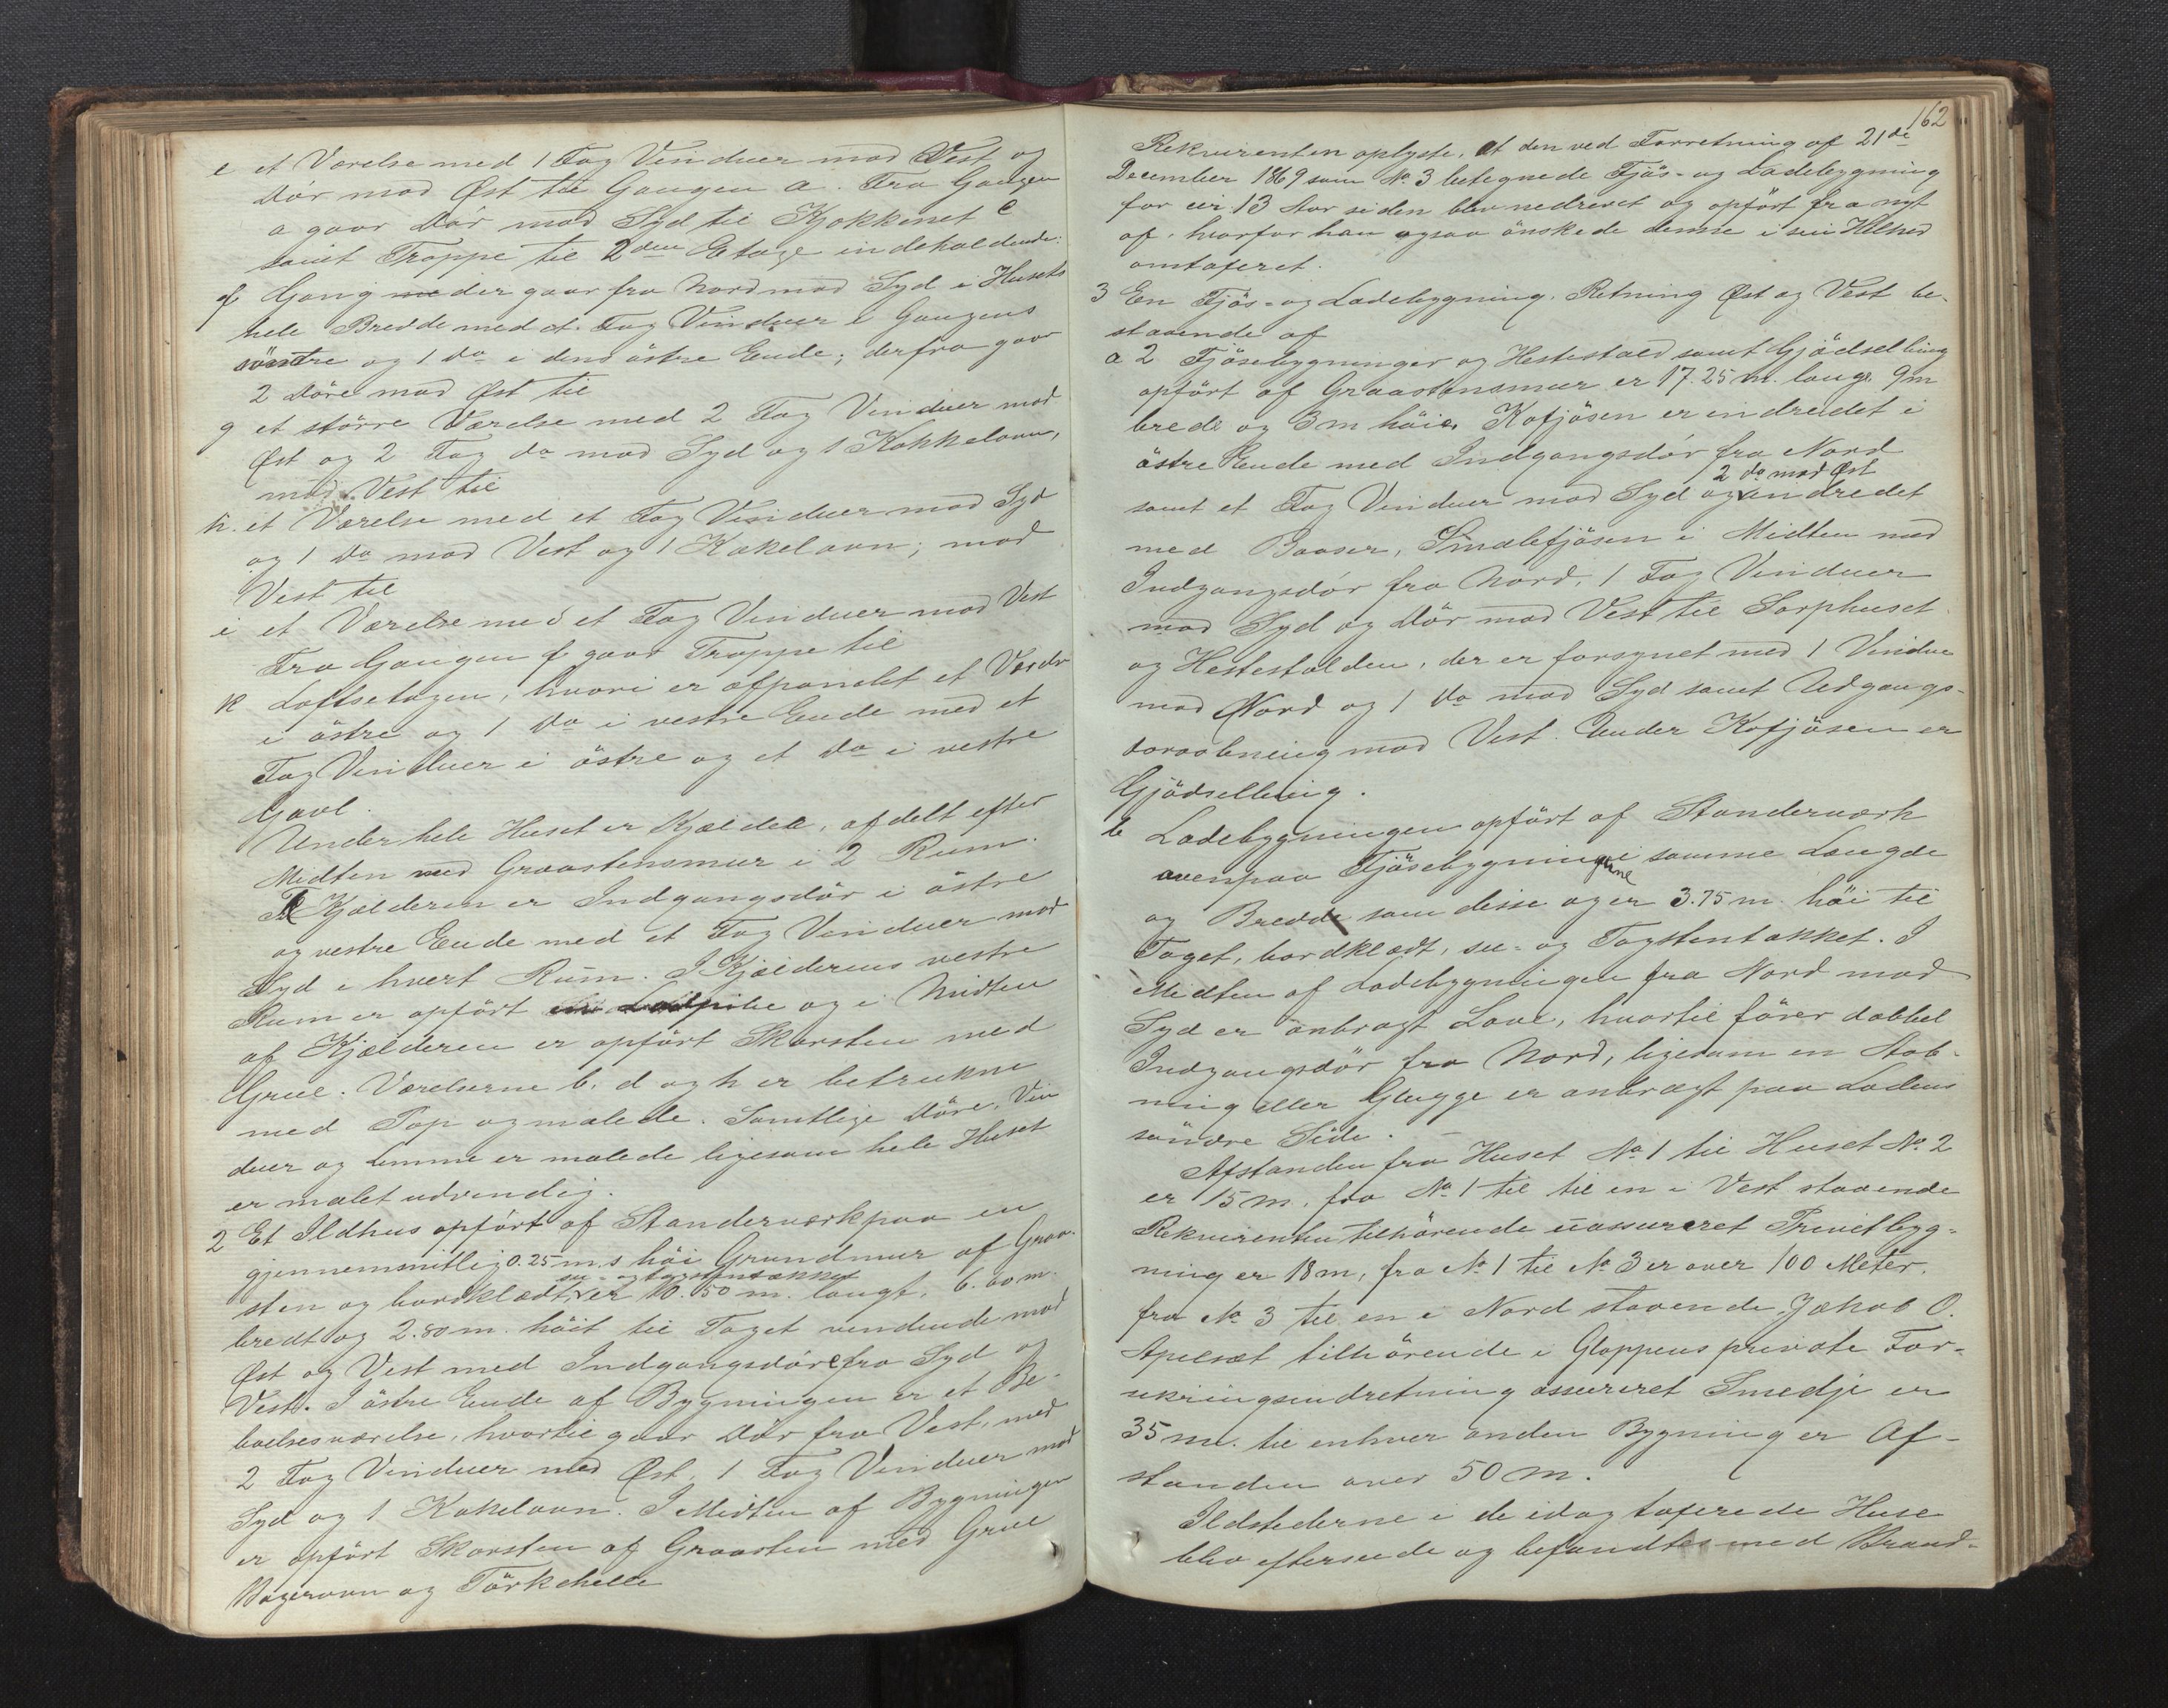 e et Værelse med 1 Fag Vinduer mod Vest og
Dör mod Öst til Gangen a. Fra Gangen
a gaar Dör mod Syd til Kjökkenet c
samt Trappe til 2den Etage indeholdende:
f Gang der gaar fra Nord mod Syd i Husets
hele Bredde med et Fag Vinduer i Gangens
söndre og 1 do i dens östre Ende; derfra gaar
2 Döre mod Öst til
g et större Værelse med 2 Fag Vinduer mod
Öst og 2 Fag do mod Syd og 1 Kakkelovn,
mod Vest til
h. et Værelse med et Fag Vinduer mod Syd
og 1 do mod Vest og 1 Kakelovn; mod
Vest til
i et Værelse med et Fag Vinduer mod Vest
Fra Gangen f gaar Trappe til
k Loftsetagen, hvori er afpanelet et Værelse
i östre og 1 do i vestre Ende med et
Fag Vinduer i östre og et do i vestre
Gavl.
Under hele Huset er Kjælder, afdelt efter
Midten med Graastensmur i 2 Rum.
Til Kjælderen er Indgangsdör i östre
og vestre Ende med et Fag Vinduer mod
Syd i hvert Rum. I Kjælderens vestre
Rum er opfört og i Midten
af Kjælderen er opfört Skorsten med
Grue. Værelserne b. d og h er betrukne
med Tap og malede. Samtlige Döre, Vin
duer og Lemme er malede ligesom hele Huset
er malet udvendig.
2 Et Ildhus opfört af Standerværk paa en
gjennemsnitlig 0.25 m.s höi Grundmur af Graa-
sten og bordklædt, su- og tagstentækket er 10.50 m. langt, 6.00 m.
bredt og 2.80 m. höit til Taget vendende mod
Öst og Vest med Indgangsdöre fra Syd og
Vest. I östre Ende af Bygningen er et Be-
boelsesværelse, hvortil gaar Dör fra Vest, med
2 Fag Vinduer mod Öst, 1 Fag Vinduer mod
Syd og 1 Kakelovn. I Midten af Bygningen
er opfört Skorsten af Graasten med Grue
Bagerovn og Törkehelle
162
Rekvirenten oplyste, at den ved Forretning af 21de
December 1869 som No. 3 betegnede Fjös- og Ladebygning
for cir 13 Aar siden blev nedrevet og opfört fra nyt
af, hvorfor han ogsaa önskede denne i sin Helhed
omtaxeret.
3 En Fjös- og Ladebygning. Retning Öst og Vest be-
staaende af
a 2 Fjösebygninger og Hestestald samt Gjödselbing
opfört af Graastensmur er 17.25 m. lange 9 m
brede og 3 m höie. Kofjösen er indredet i
östre Ende med Indgangsdör fra Nord
samt et Fag Vinduer mod Syd og 2 do mod Öst indredet
med Baaser, Smalefjösen i Midten med
Indgangsdör fra Nord, 1 Fag Vinduer
mod Syd og Dör mod Vest til Sörphuset
og Hestestalden, der er forsynet med 1 Vindue
mod Nord og 1 do mod Syd samt Udgangs-
doraabning mod Vest. Under Kofjösen er
Gjödselbing.
b Ladebygningen opfört af Standerværk
ovenpaa Fjösebygningerne i samme Længde
og Bredde som disse og er 3.75 m. höi til
Taget, bordklædt, su- og Tagstentækket. I
Midten af Ladebygningen fra Nord mod
Syd er anbragt Lave, hvortil förer dobbel
Indgangsdör fra Nord, ligesom en Aab-
ning eller Glugge er anbragt paa Ladens
söndre Side.
Afstanden fra Huset No. 1 til Huset No. 2
er 15 m. fra No. 1 til til en i Vest staaende
Rekvirenten tilhörende uassureret Privetbyg-
ning er 18 m, fra No. 1 til No. 3 er over 100 Meter.
fra No. 3 til en i Nord staaende, Jakob O.
Apelsæt tilhörende i Gloppens private For-
sikringsindretning assureret Smedje er
35 m. til enhver anden Bygning er Af-
standen over 50 m.
Ildstederne i de idag taxerede Huse
blev efterseede og befandtes med Brand-